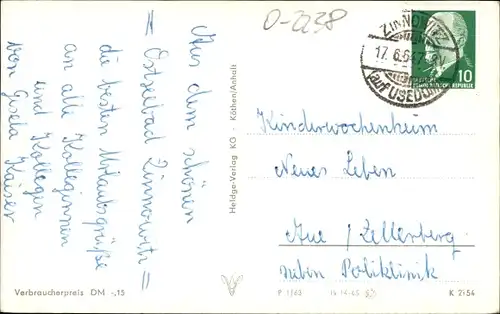 O-2238
Aus dem schönen
= Ostseebad Zinnowitz =
die besten Urlaubsgrüße
an alle Kolleginnen
und Kollegen
von Gisela Kaiser
Verbraucherpreis DM -,15
Heldge-Verlag KG - Köthen/Anhalt
ZINNOWITZ
17. 6. 64
auf USEDOM
10
DEUTSCHE
DEMOKRATISCHE REPUBLIK
Kinderwochenheim
Neues Leben
Aue / Zellerberg
neben Poliklinik
P 1/63
K 2154